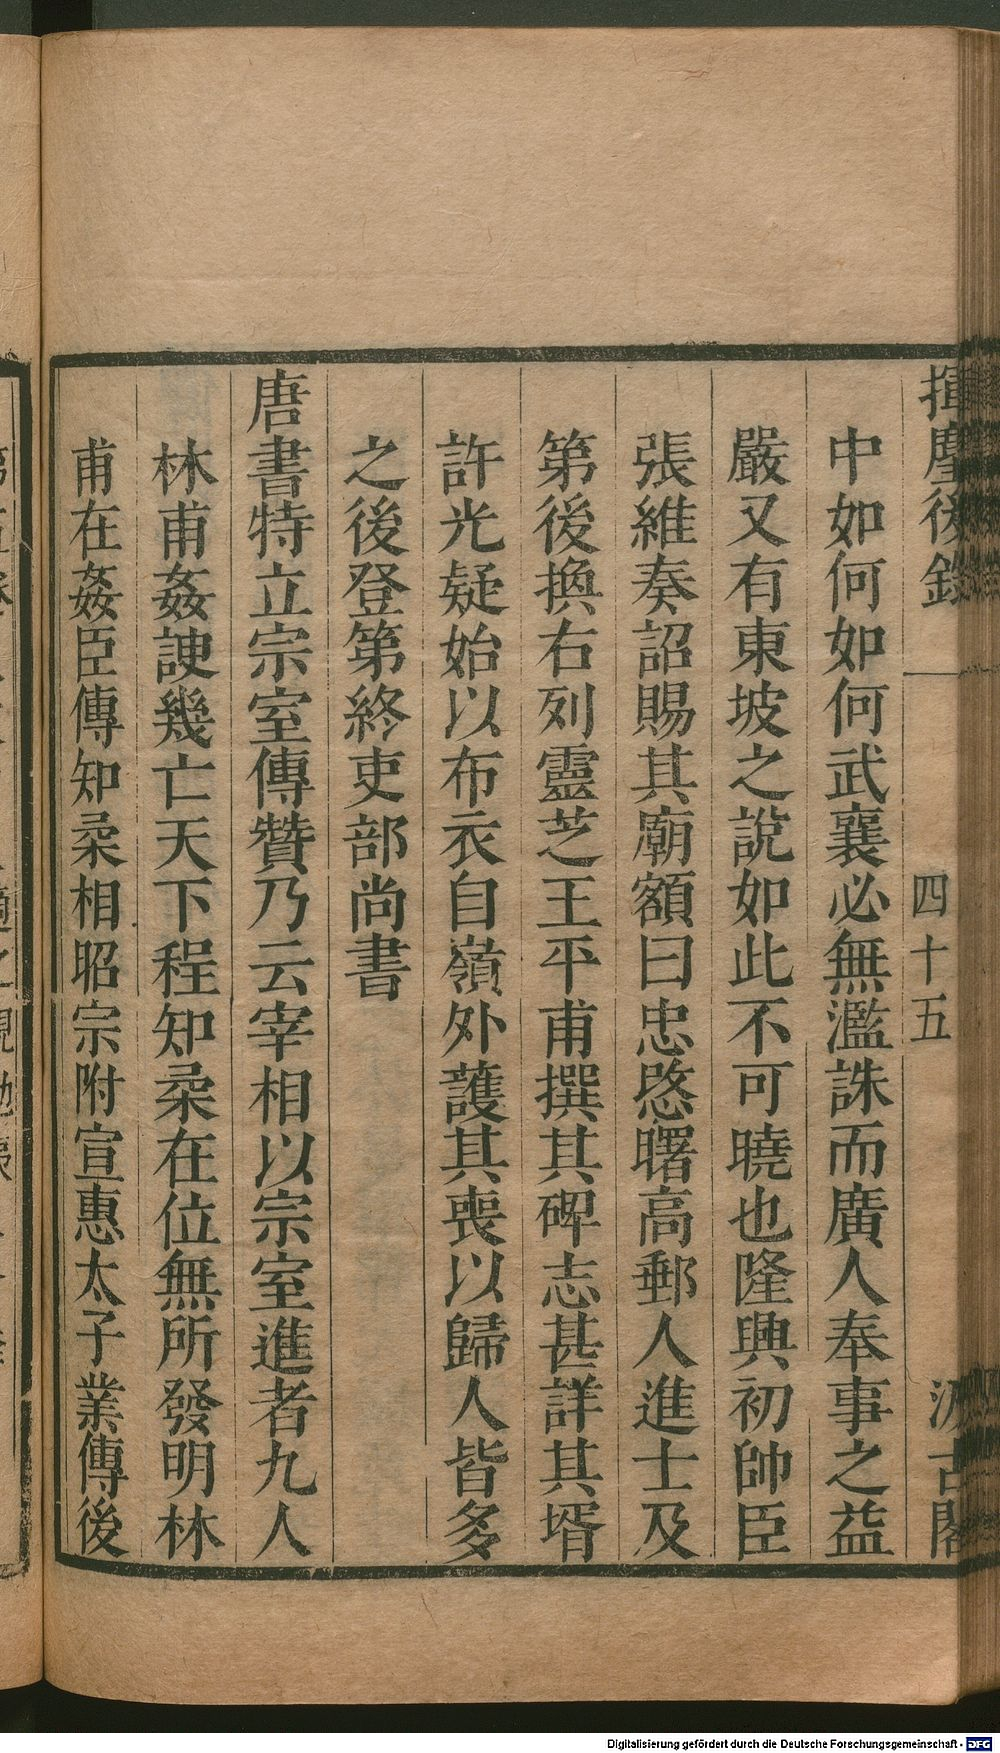 揮麈後錄
四十五
汲古閣
中如何如何武襄必無濫誅而廣人奉事之益
嚴又有東坡之說如此不可曉也隆興初帥臣
張維奏詔賜其廟額曰忠愍曙高郵人進士及
第後換右列靈芝王平甫撰其碑志甚詳其壻
許光疑始以布衣自嶺外護其喪以歸人皆多
之後登第終吏部尚書
唐書特立宗室傳贊乃云宰相以宗室進者九人
林甫姦諛幾亡天下程知柔在位無所發明林
甫在姦臣傳知柔相昭宗附宣惠太子業傳後
Digitalisierung gefördert durch die Deutsche Forschungsgemeinschaft - DFG